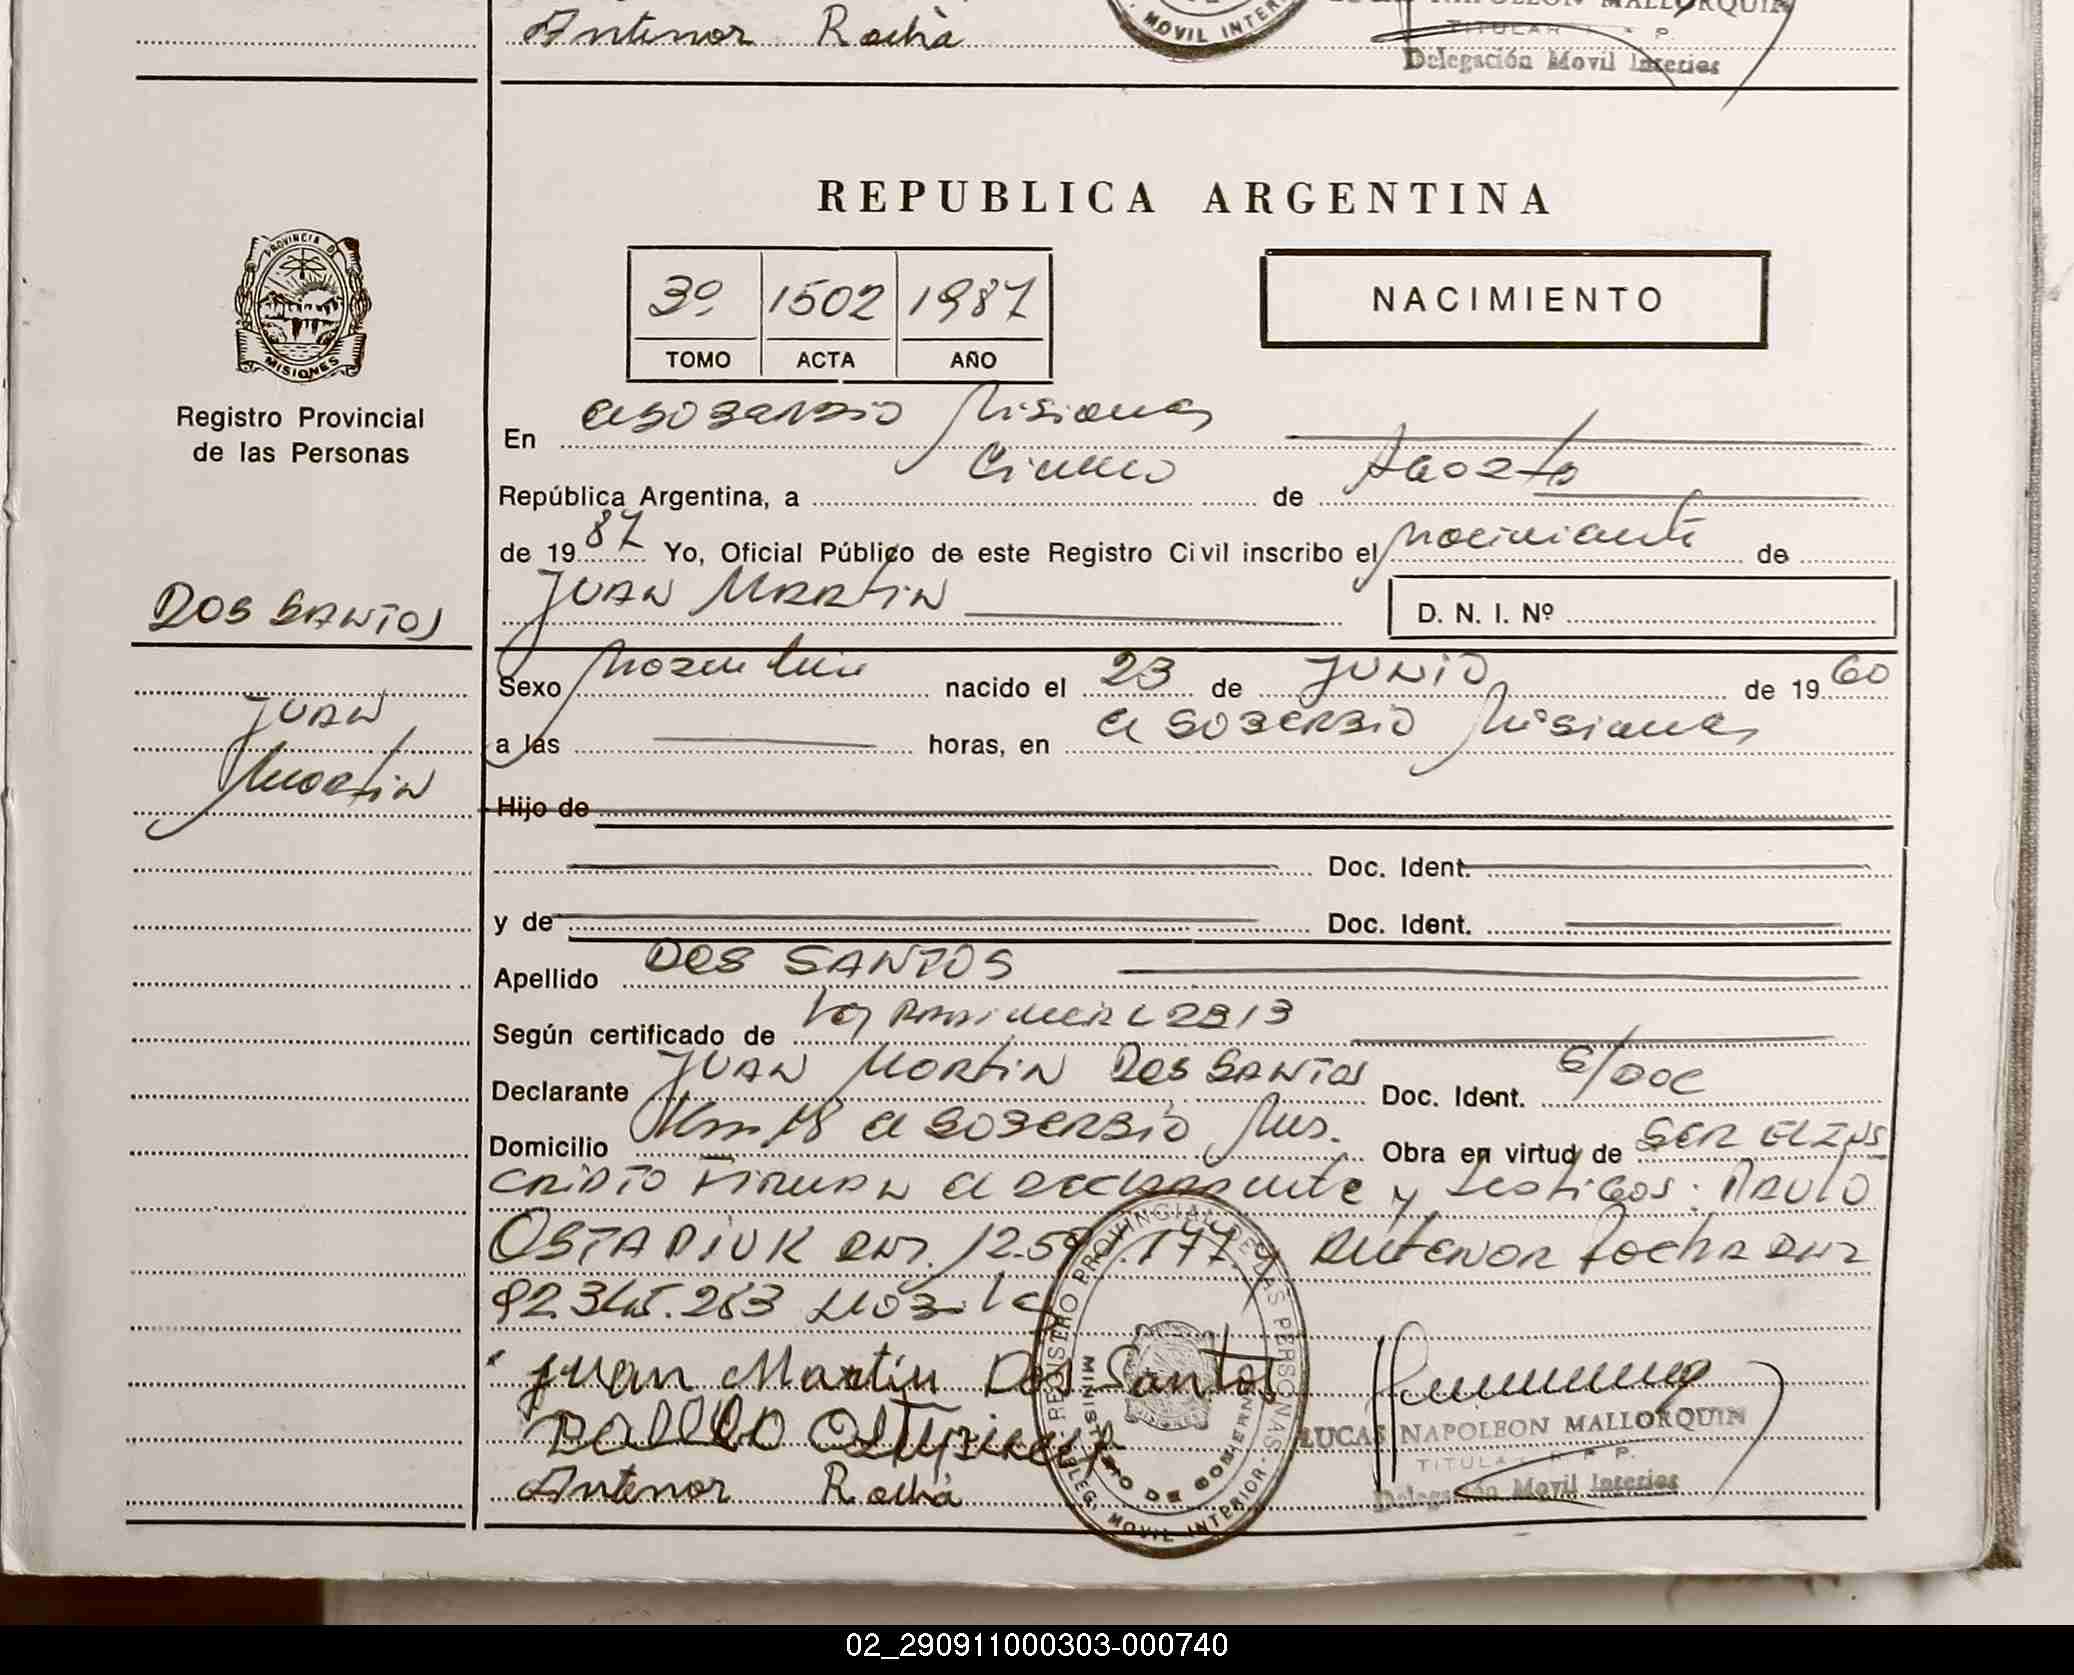 Antenor Rocha
MOVIL INTER
LUCAS NAPOLEON MALLORQUIN
TITULAR R. P. P.
Delegación Movil Interior
REPUBLICA ARGENTINA
3º 1502 1987
TOMO ACTA AÑO
NACIMIENTO
PROVINCIA DE
MISIONES
Registro Provincial
de las Personas
En El Soberbio Misiones
República Argentina, a Cinco de Agosto
de 1987 Yo, Oficial Público de este Registro Civil inscribo el Nacimiento de
JUAN MARTIN
D. N. I. Nº
DOS SANTOS
JUAN
Martin
Sexo Masculino nacido el 23 de JUNIO de 1960
a las horas, en El Soberbio Misiones
Hijo de
Doc. Ident.
y de Doc. Ident.
Apellido DOS SANTOS
Según certificado de Ley 2313
Declarante JUAN MARTIN DOS SANTOS Doc. Ident. S/DOC
Domicilio Km 18 El Soberbio Mis. Obra en virtud de SER EL INS
CRIPTO FIRMAN El Declarante y testigos: PAULO
DNI. 12.5 .177 y Antenor Rocha DNI
92.345.283
Juan Martin Dos Santos
Antenor Rocha
REGISTRO PROVINCIAL DE LAS PERSONAS
MINISTERIO DE GOBIERNO
DELEG. MOVIL INTERIOR
LUCAS NAPOLEON MALLORQUIN
TITULAR R. P. P.
Delegación Movil Interior
02_290911000303-000740